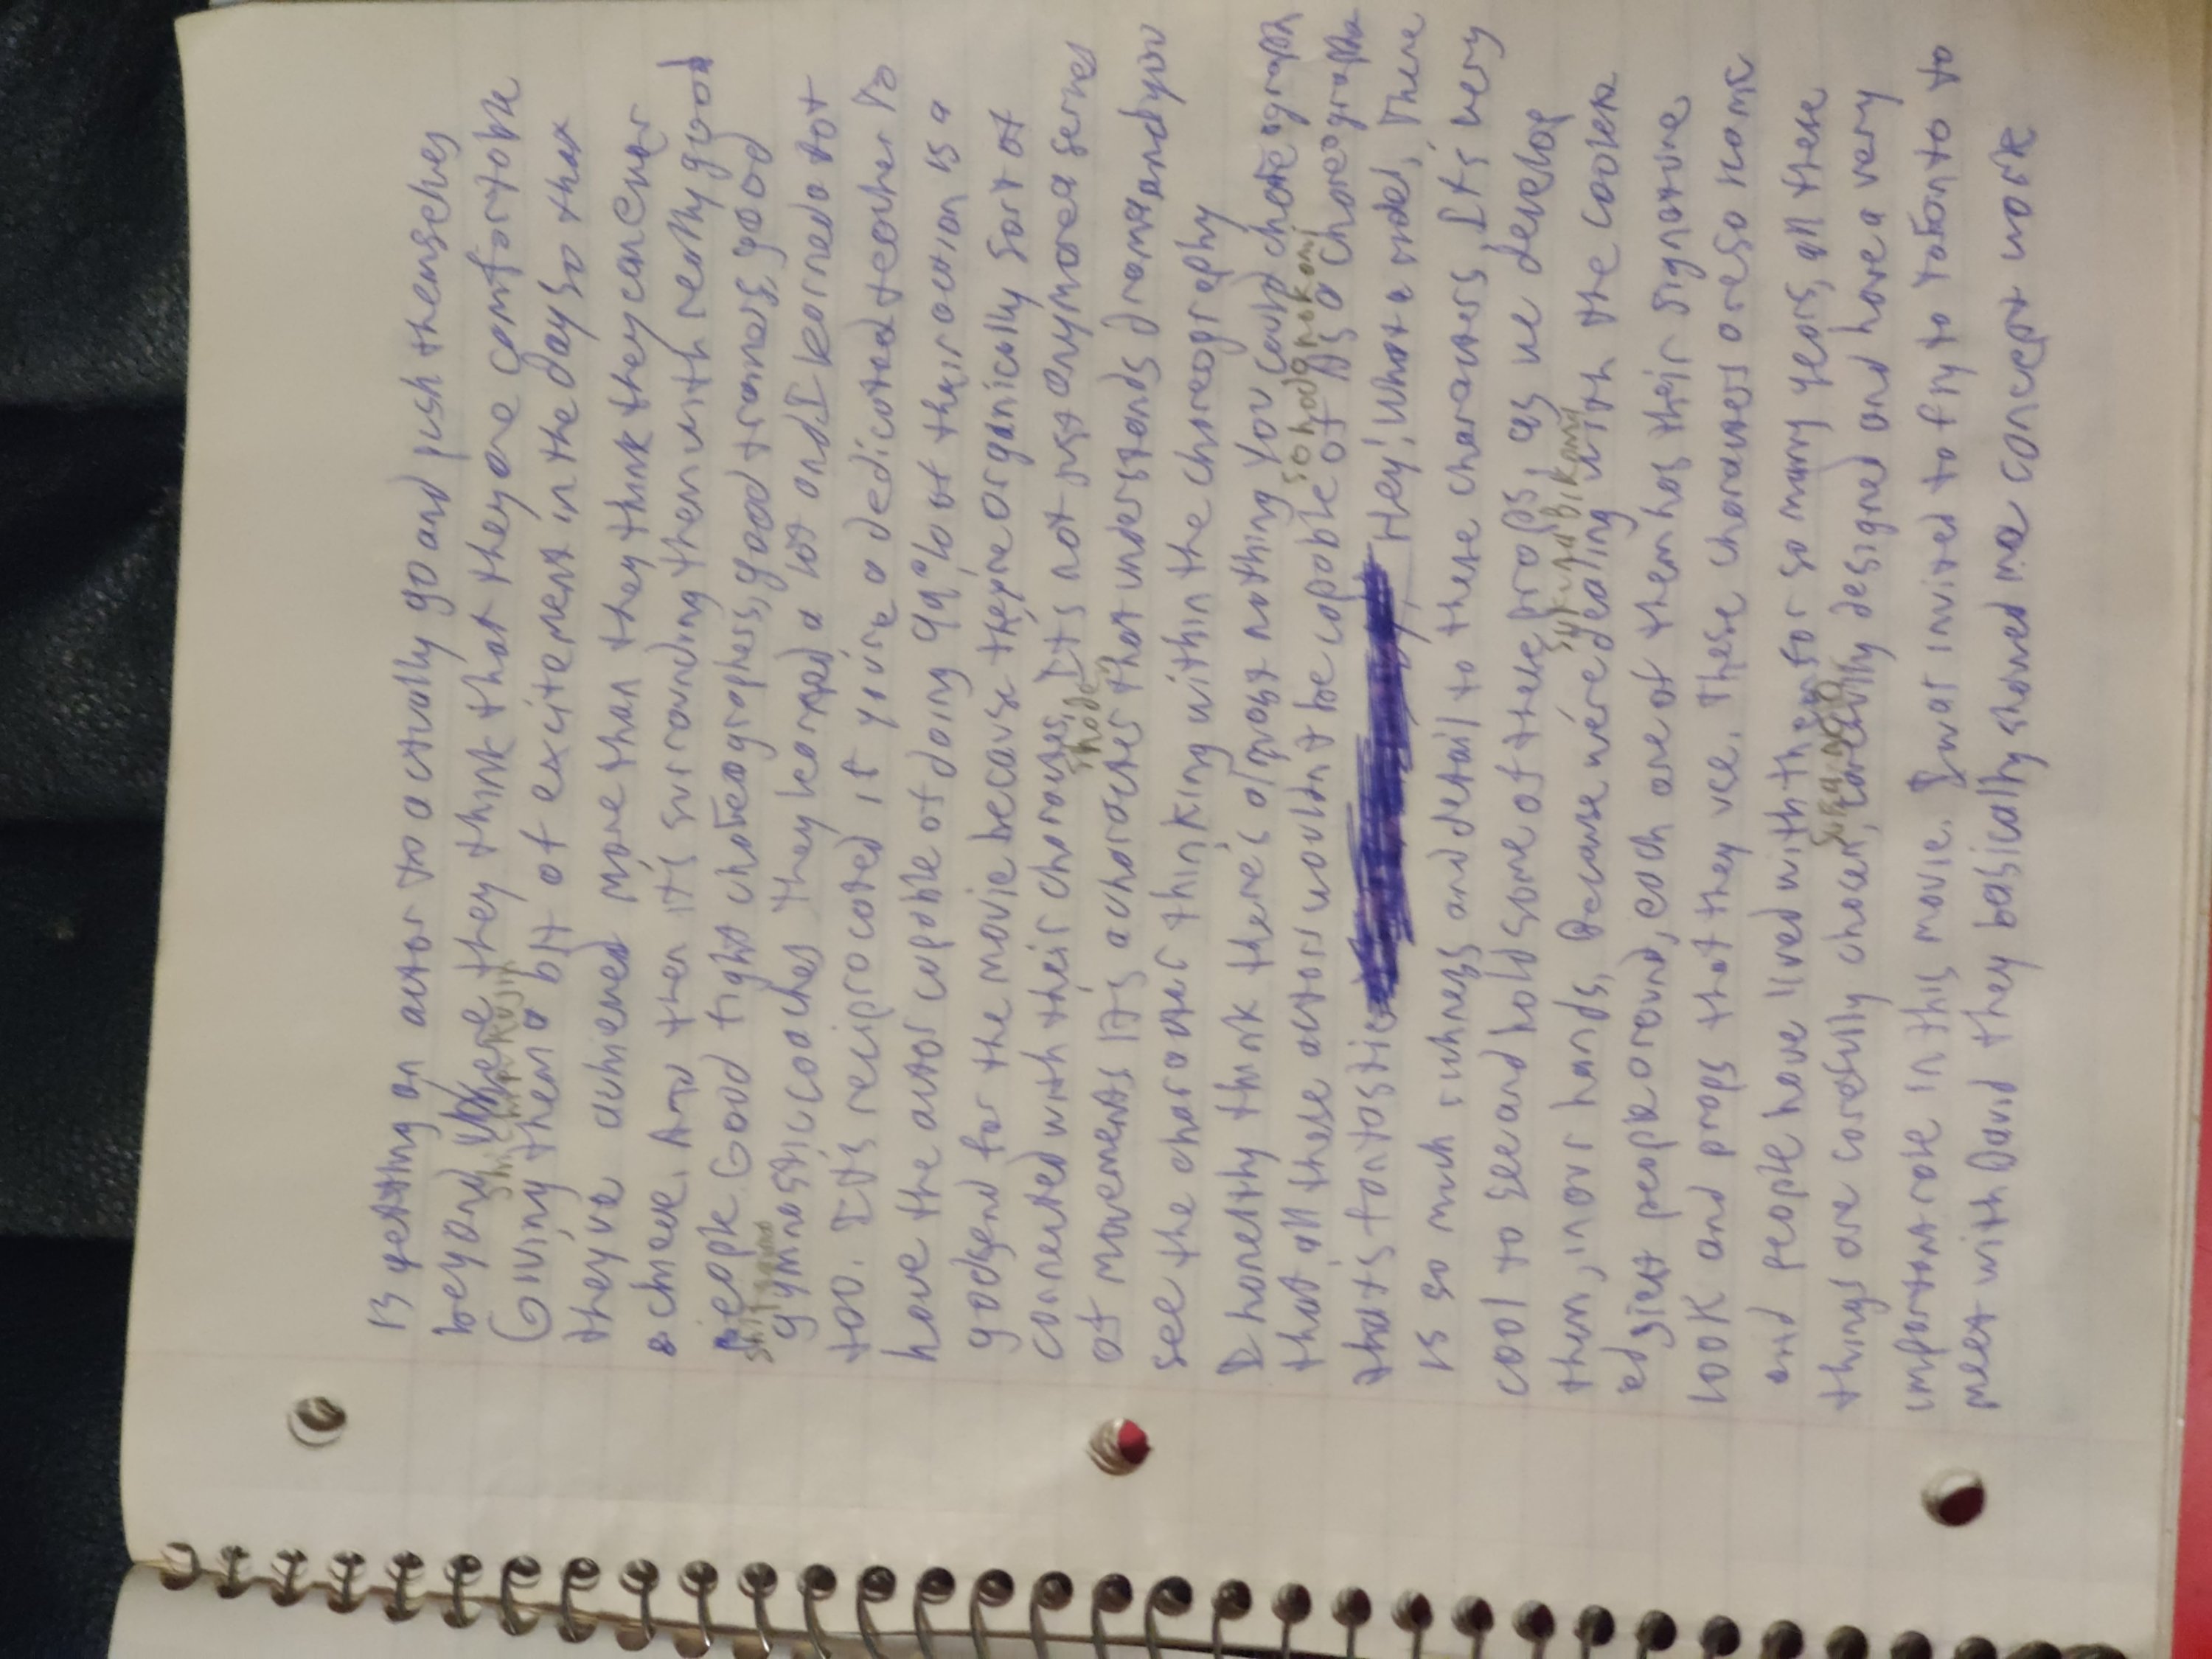 is getting an actor to actually go and push themselves
beyond where they think that they are comfortable
Giving them a bit of excitement in the day so that
they've achieved more than they think they can ever
achieve. And then it's surrounding them with really good
people. Good fight choreographers, good trainers, good
gymnastic coaches they learned a lot and I learned a lot
too. It's reciprocated if you're a dedicated teacher to
have the actor capable of doing 99% of their action is a
godsend for the movie because they're organically sort of
connected with their characters, It's not just anymore a series
of movements it's a character that understands drama, and you
see the character thinking within the choreography
I honestly think there's almost nothing you could choreograph
that all these actors wouldn't be capable of As a choreographer
that's fantastic Hey, what a model, There
is so much richness and detail to these characters, It's very
cool to see and hold some of these props, as we develop
them, in our hands, Because we're dealing with the coolest
edgiest people around, each one of them has their signature
look and props that they use. These characters are so iconic
and people have lived with them for so many years, all these
things are carefully chosen, carefully designed and have a very
important role in this movie. I was invited to fly to Toronto to
meet with David they basically showed me concept work